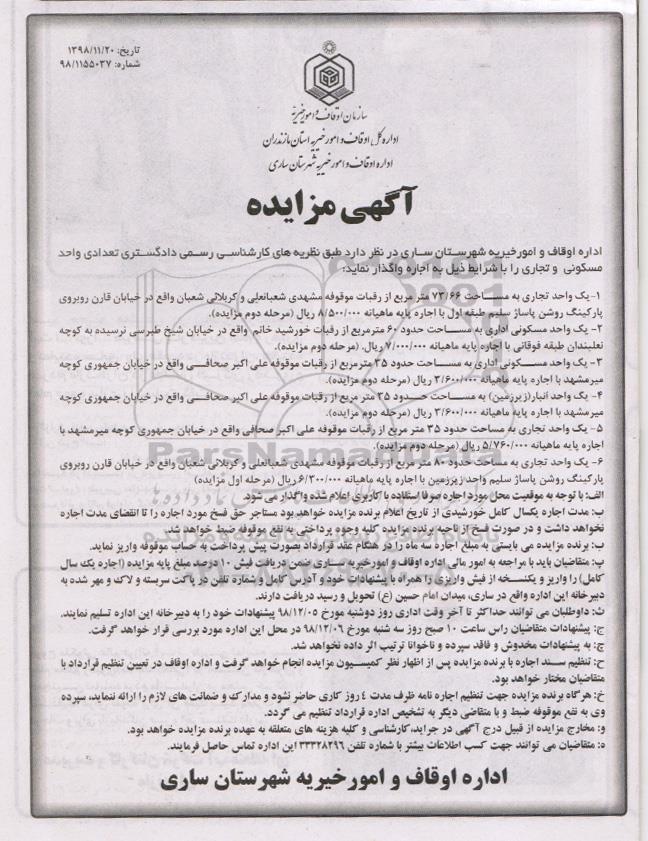 تاریخ: ۱۳۹۸/۱۱/۲۰
شماره: ۹۸/۱۱۵۵۰۳۷
سازمان اوقاف و امور خیریه
اداره کل اوقاف و امور خیریه استان مازندران
اداره اوقاف و امور خیریه شهرستان ساری
آگهی مزایده
اداره اوقاف و امورخیریه شهرستان ساری در نظر دارد طبق نظریه های کارشناسی رسمی دادگستری تعدادی واحد
مسکونی و تجاری را با شرایط ذیل به اجاره واگذار نماید:
۱- یک واحد تجاری به مساحت ۷۳/۶۶ متر مربع از رقبات موقوفه مشهدی شعبانعلی و کربلائی شعبان واقع در خیابان قارن روبروی
پارکینگ روشن پاساژ سلیم طبقه اول با اجاره پایه ماهیانه ۸/۵۰۰/۰۰۰ ریال (مرحله دوم مزایده).
۲- یک واحد مسکونی اداری به مساحت حدود ۶۰ مترمربع از رقبات خورشید خانم واقع در خیابان شیخ طبرسی نرسیده به کوچه
نعلبندان طبقه فوقانی با اجاره پایه ماهیانه ۷/۰۰۰/۰۰۰ ریال. (مرحله دوم مزایده).
۳- یک واحد مسکونی اداری به مساحت حدود ۳۵ مترمربع از رقبات موقوفه علی اکبر صحافی واقع در خیابان جمهوری کوچه
میرمشهد با اجاره پایه ماهیانه ۳/۶۰۰/۰۰۰ ریال (مرحله دوم مزایده).
۴- یک واحد انبار(زیرزمین) به مساحت حدود ۳۵ متر مربع از رقبات موقوفه علی اکبر صحافی واقع در خیابان جمهوری کوچه
میرمشهد با اجاره پایه ماهیانه ۳/۶۰۰/۰۰۰ ریال (مرحله دوم مزایده).
۵- یک واحد تجاری به مساحت حدود ۳۵ متر مربع از رقبات موقوفه علی اکبر صحافی واقع در خیابان جمهوری کوچه میرمشهد با
اجاره پایه ماهیانه ۵/۷۶۰/۰۰۰ ریال (مرحله دوم مزایده).
۶- یک واحد تجاری به مساحت حدود ۸۰ متر مربع از رقبات موقوفه مشهدی شعبانعلی و کربلائی شعبان واقع در خیابان قارن روبروی
پارکینگ روشن پاساژ سلیم واحد زیرزمین با اجاره پایه ماهیانه ۶/۳۰۰/۰۰۰ ریال (مرحله اول مزایده)
الف: با توجه به موقعیت محل مورد اجاره صرفا استفاده با کاربری اعلام شده واگذار می شود.
ب: مدت اجاره یکسال کامل خورشیدی از تاریخ اعلام برنده مزایده خواهد بود مستاجر حق فسخ مورد اجاره را تا انقضای مدت اجاره
نخواهد داشت و در صورت فسخ از ناحیه برنده مزایده کلیه وجوه پرداختی به نفع موقوفه ضبط خواهد شد.
پ: برنده مزایده می بایستی به مبلغ اجاره سه ماه را در هنگام عقد قرارداد بصورت پیش پرداخت به حساب موقوفه واریز نماید.
پ: متقاضیان باید با مراجعه به امور مالی اداره اوقاف و امورخیریه ساری ضمن دریافت فیش ۱۰ درصد مبلغ پایه مزایده (اجاره یک سال
کامل) را واریز و یکنسخه از فیش واریزی را همراه با پیشنهادات خود و آدرس کامل و شماره تلفن در پاکت سربسته و لاک و مهر شده به
دبیرخانه این اداره واقع در ساری، میدان امام حسین (ع) تحویل و رسید دریافت دارند.
ث: داوطلبان می توانند حداکثر تا آخر وقت اداری روز دوشنبه مورخ ۹۸/۱۲/۰۵ پیشنهادات خود را به دبیرخانه این اداره تسلیم نمایند.
ج: پیشنهادات متقاضیان راس ساعت ۱۰ صبح روز سه شنبه مورخ ۹۸/۱۲/۰۶ در محل این اداره مورد بررسی قرار خواهد گرفت.
چ: به پیشنهادات مخدوش و فاقد سپرده و ناخوانا ترتیب اثر داده نخواهد شد.
ح: تنظیم سند اجاره با برنده مزایده پس از اظهار نظر کمیسیون مزایده انجام خواهد گرفت و اداره اوقاف در تعیین تنظیم قرارداد با
متقاضیان مختار خواهد بود.
خ: هرگاه برنده مزایده جهت تنظیم اجاره نامه ظرف مدت ٤ روز کاری حاضر نشود و مدارک و ضمانت های لازم را ارائه ننماید، سپرده
وی به نفع موقوفه ضبط و با متقاضی دیگر به تشخیص اداره قرارداد تنظیم می گردد.
و: مخارج مزایده از قبیل درج آگهی در جراید، کارشناسی و کلیه هزینه های متعلقه به عهده برنده مزایده خواهد بود.
ه: متقاضیان می توانند جهت کسب اطلاعات بیشتر با شماره تلفن ۳۳۳۲۸۲۹۶ این اداره تماس حاصل فرمایند.
اداره اوقاف و امورخیریه شهرستان ساری
ParsNamadData